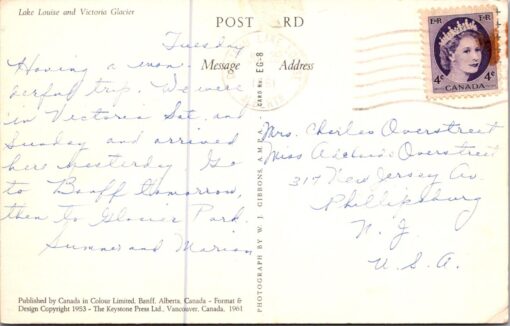 Lake Louise and Victoria Glacier
POST CARD
Tuesday
Message
Address
Having a won-
derful trip. We were
in Victoria Sat. and
Sunday and arrived
here yesterday Go
to Banff tomorrow,
then to Glacier Park.
Sumner and Marion
CARD NO. EG-8
PHOTOGRAPH BY W. J. GIBBONS, A.M.P.A.
E R
E R
4¢
4¢
CANADA
Mrs. Charles Overstreet
Miss Adelaide Overstreet
317 New Jersey Av
Phillipsburg
N. J.
U. S. A.
Published by Canada in Colour Limited, Banff, Alberta, Canada – Format &
Design Copyright 1953 – The Keystone Press Ltd., Vancouver, Canada, 1961